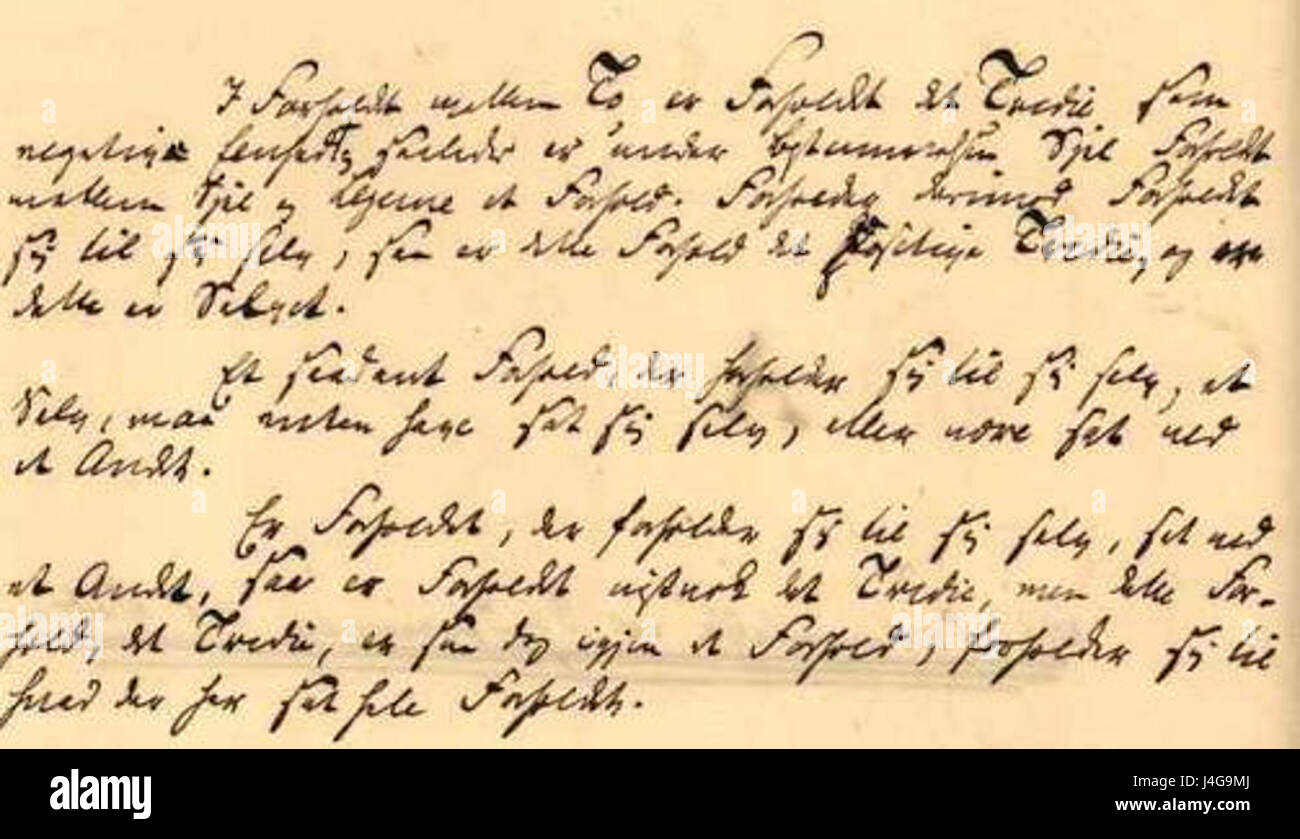 I Forholdet mellem To er Forholdet det Tredie som
negativ Eenhed, saaledes er under Bestemmelsen Sjel Forholdet
mellem Sjel og Legeme et Forhold. Forholder derimod Forholdet
sig til sig selv, saa er dette Forhold det positive Tredie, og
dette er Selvet.
Et saadant Forhold, der forholder sig til sig selv, et
Selv, maa enten have sat sig selv, eller være sat ved
et Andet.
Er Forholdet, der forholder sig til sig selv, sat ved
et Andet, saa er Forholdet vistnok det Tredie, men dette For-
hold, det Tredie, er saa dog igjen et Forhold, forholder sig til
hvad der har sat hele Forholdet.
alamy stock photo
J4G9MJ
www.alamy.com